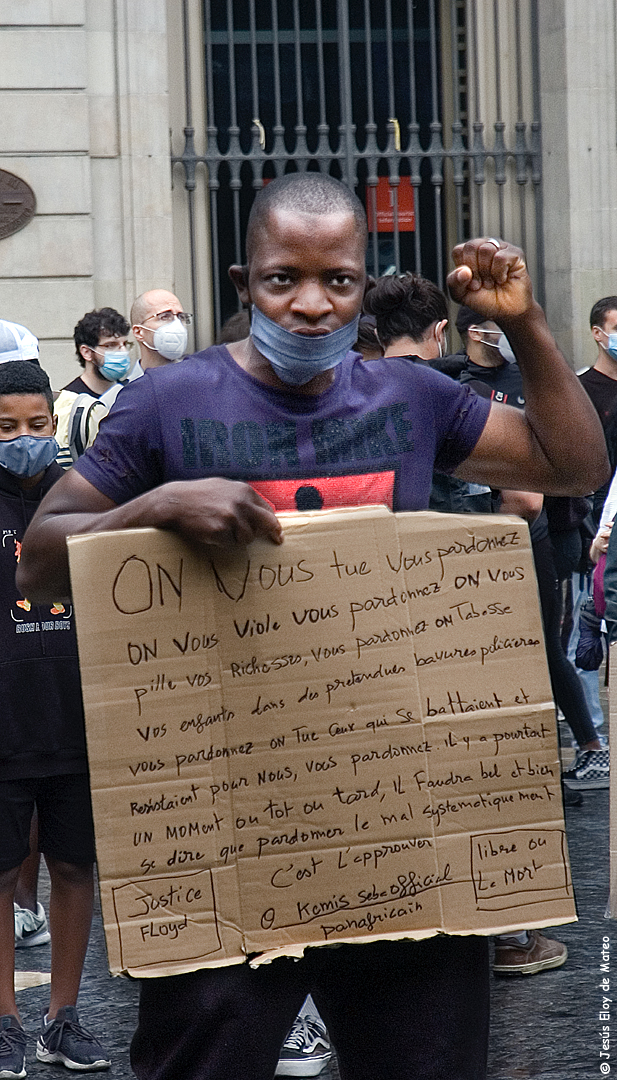 IRON MIKE
ON VOUS tue Vous pardonnez
ON VOUS Viole VOUS pardonnez ON VOUS
pille vos Richesses, vous pardonnez ON Tabasse
vos enfants dans des pretendues bavures policières
vous pardonnez ON Tue Ceux qui Se battaient et
Resistaient pour NOUS, VOUS pardonnez. iL y a pourtant
UN MOMent ou tot ou tard, iL Faudra bel et bien
se dire que pardonner le mal systematiquement
C'est L'approuver
Justice
FLoyd
@ Kemis seba official
panafricain
libre ou
La Mort
© Jesús Eloy de Mateo